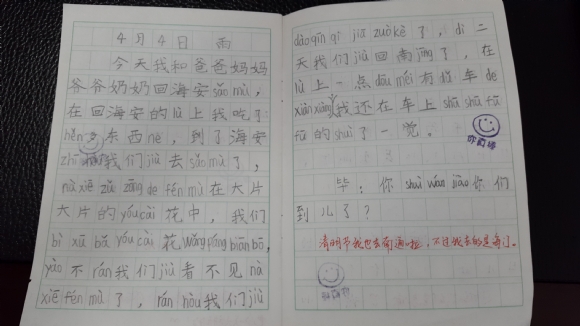 4月4日 雨
今天我和爸爸妈妈
爷爷奶奶回海安sǎo mù,
在回海安的lù上我吃了
hěn多东西ne,到了海安
zhī 我们jiù去sǎo mù了,
nà xiē zá zāng de fén mù在大片
大片的yóu cài花中,我们
bì xū bǎ yóu cài花wǎng páng biān bō,
yào不rán我们jiù看不见nà
xiē fén mù了,rán hòu我们jiù
dào qīn qi jiā zuò kè了,dì二
天我们jiù回南jīng了,在
lù上一点dōu méi有堵车de
xiàn xiàng,我还在车上shū shū fú
fú的shuì了一觉。
毕:你shuì wán jiào你们
到儿了?
清明节我也去南通啦,不过我去的是海门。